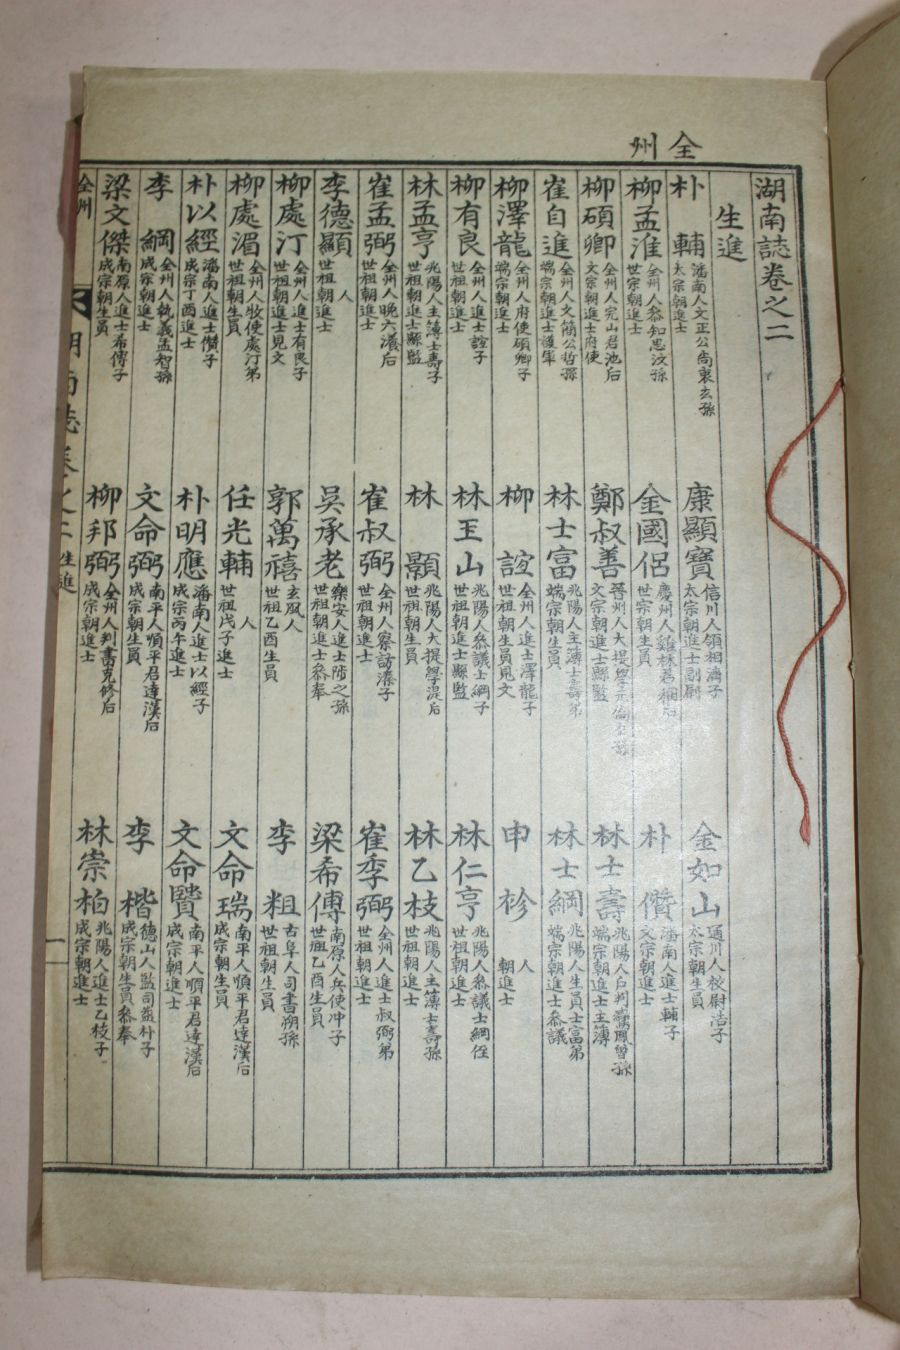 全州
湖南誌卷之二
生進
朴輔 潘南人文正公尙衷玄孫太宗朝進士
康顯寶 信川人領相濟子太宗朝進士副尉
金如山 通川人校尉浩子太宗朝生員
柳孟淮 全州人叅知思汶孫世宗朝進士
金國侶 慶州人雞林君稛后世宗朝生員
朴儹 潘南人進士輔子文宗朝進士
柳碩卿 全州人完山君池后文宗朝進士府使
鄭叔善 晉州人大提學文宗朝進士縣監
林士壽 兆陽人戶判鸞鳳曾孫端宗朝進士主簿
崔自進 全州人文簡公哲孫端宗朝進士護軍
林士富 兆陽人主簿士壽弟端宗朝生員
林士綱 兆陽人生員士富弟端宗朝進士叅議
柳澤龍 全州人府使碩卿子端宗朝進士
柳誼 全州人進士澤龍子世祖朝生員見文
申㐱 人朝進士
柳有良 全州人進士誼子世祖朝進士
林玉山 兆陽人叅議士綱子世祖朝進士縣監
林仁亨 兆陽人叅議士綱侄世祖朝進士
林孟亨 兆陽人主簿士壽子世祖朝進士縣監
林顥 兆陽人大提學湜后世祖朝生員
林乙枝 兆陽人主簿士壽孫世祖朝進士
崔孟弼 全州人晚六瀁后世祖朝進士
崔叔弼 全州人察訪溱子世祖朝進士
崔季弼 全州人進士叔弼弟世祖朝進士
李德顯 人世祖朝進士
吳承老 樂安人進士陟之孫世祖朝進士叅奉
梁希傅 南原人兵使冲子世祖乙酉生員
柳處汀 全州人進士有良子世祖朝進士見文
郭萬禧 玄風人世祖乙酉生員
李粗 古阜人司書朔孫世祖朝生員
柳處湄 全州人牧使處汀弟世祖朝生員
任光輔 人世祖戊子進士
文命瑞 南平人順平君達漢后成宗朝生員
朴以經 潘南人進士儹子成宗丁酉進士
朴明應 潘南人進士以經子成宗丙午進士
文命賢 南平人順平君達漢后成宗朝進士
李綱 全州人執義孟智孫成宗朝進士
文命弼 南平人順平君達漢后成宗朝生員
李楷 德山人監司益朴子成宗朝生員叅奉
梁文傑 南原人進士希傅子成宗朝生員
柳邦弼 全州人判書克修后成宗朝進士
林崇柏 兆陽人進士乙枝子成宗朝進士
全州
湖南誌卷之二 生進
一